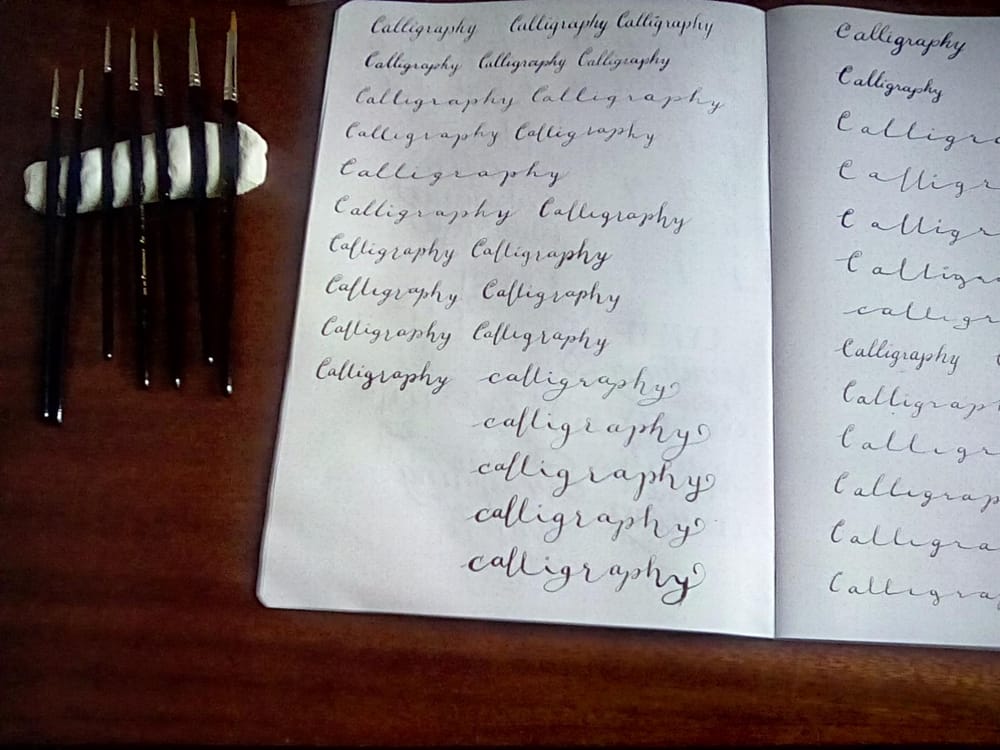 Calligraphy Calligraphy Calligraphy
Calligraphy Calligraphy Calligraphy
Calligraphy Calligraphy
Calligraphy Calligraphy
Calligraphy
Calligraphy Calligraphy
Calligraphy Calligraphy
Calligraphy Calligraphy
Calligraphy Calligraphy
Calligraphy calligraphy
calligraphy
calligraphy
calligraphy
calligraphy
Calligraphy
Calligraphy
Calligra
Calligr
Calligr
Calligra
calligr
Calligraphy
Calligrap
Calligr
Calligrap
Calligra
Calligra